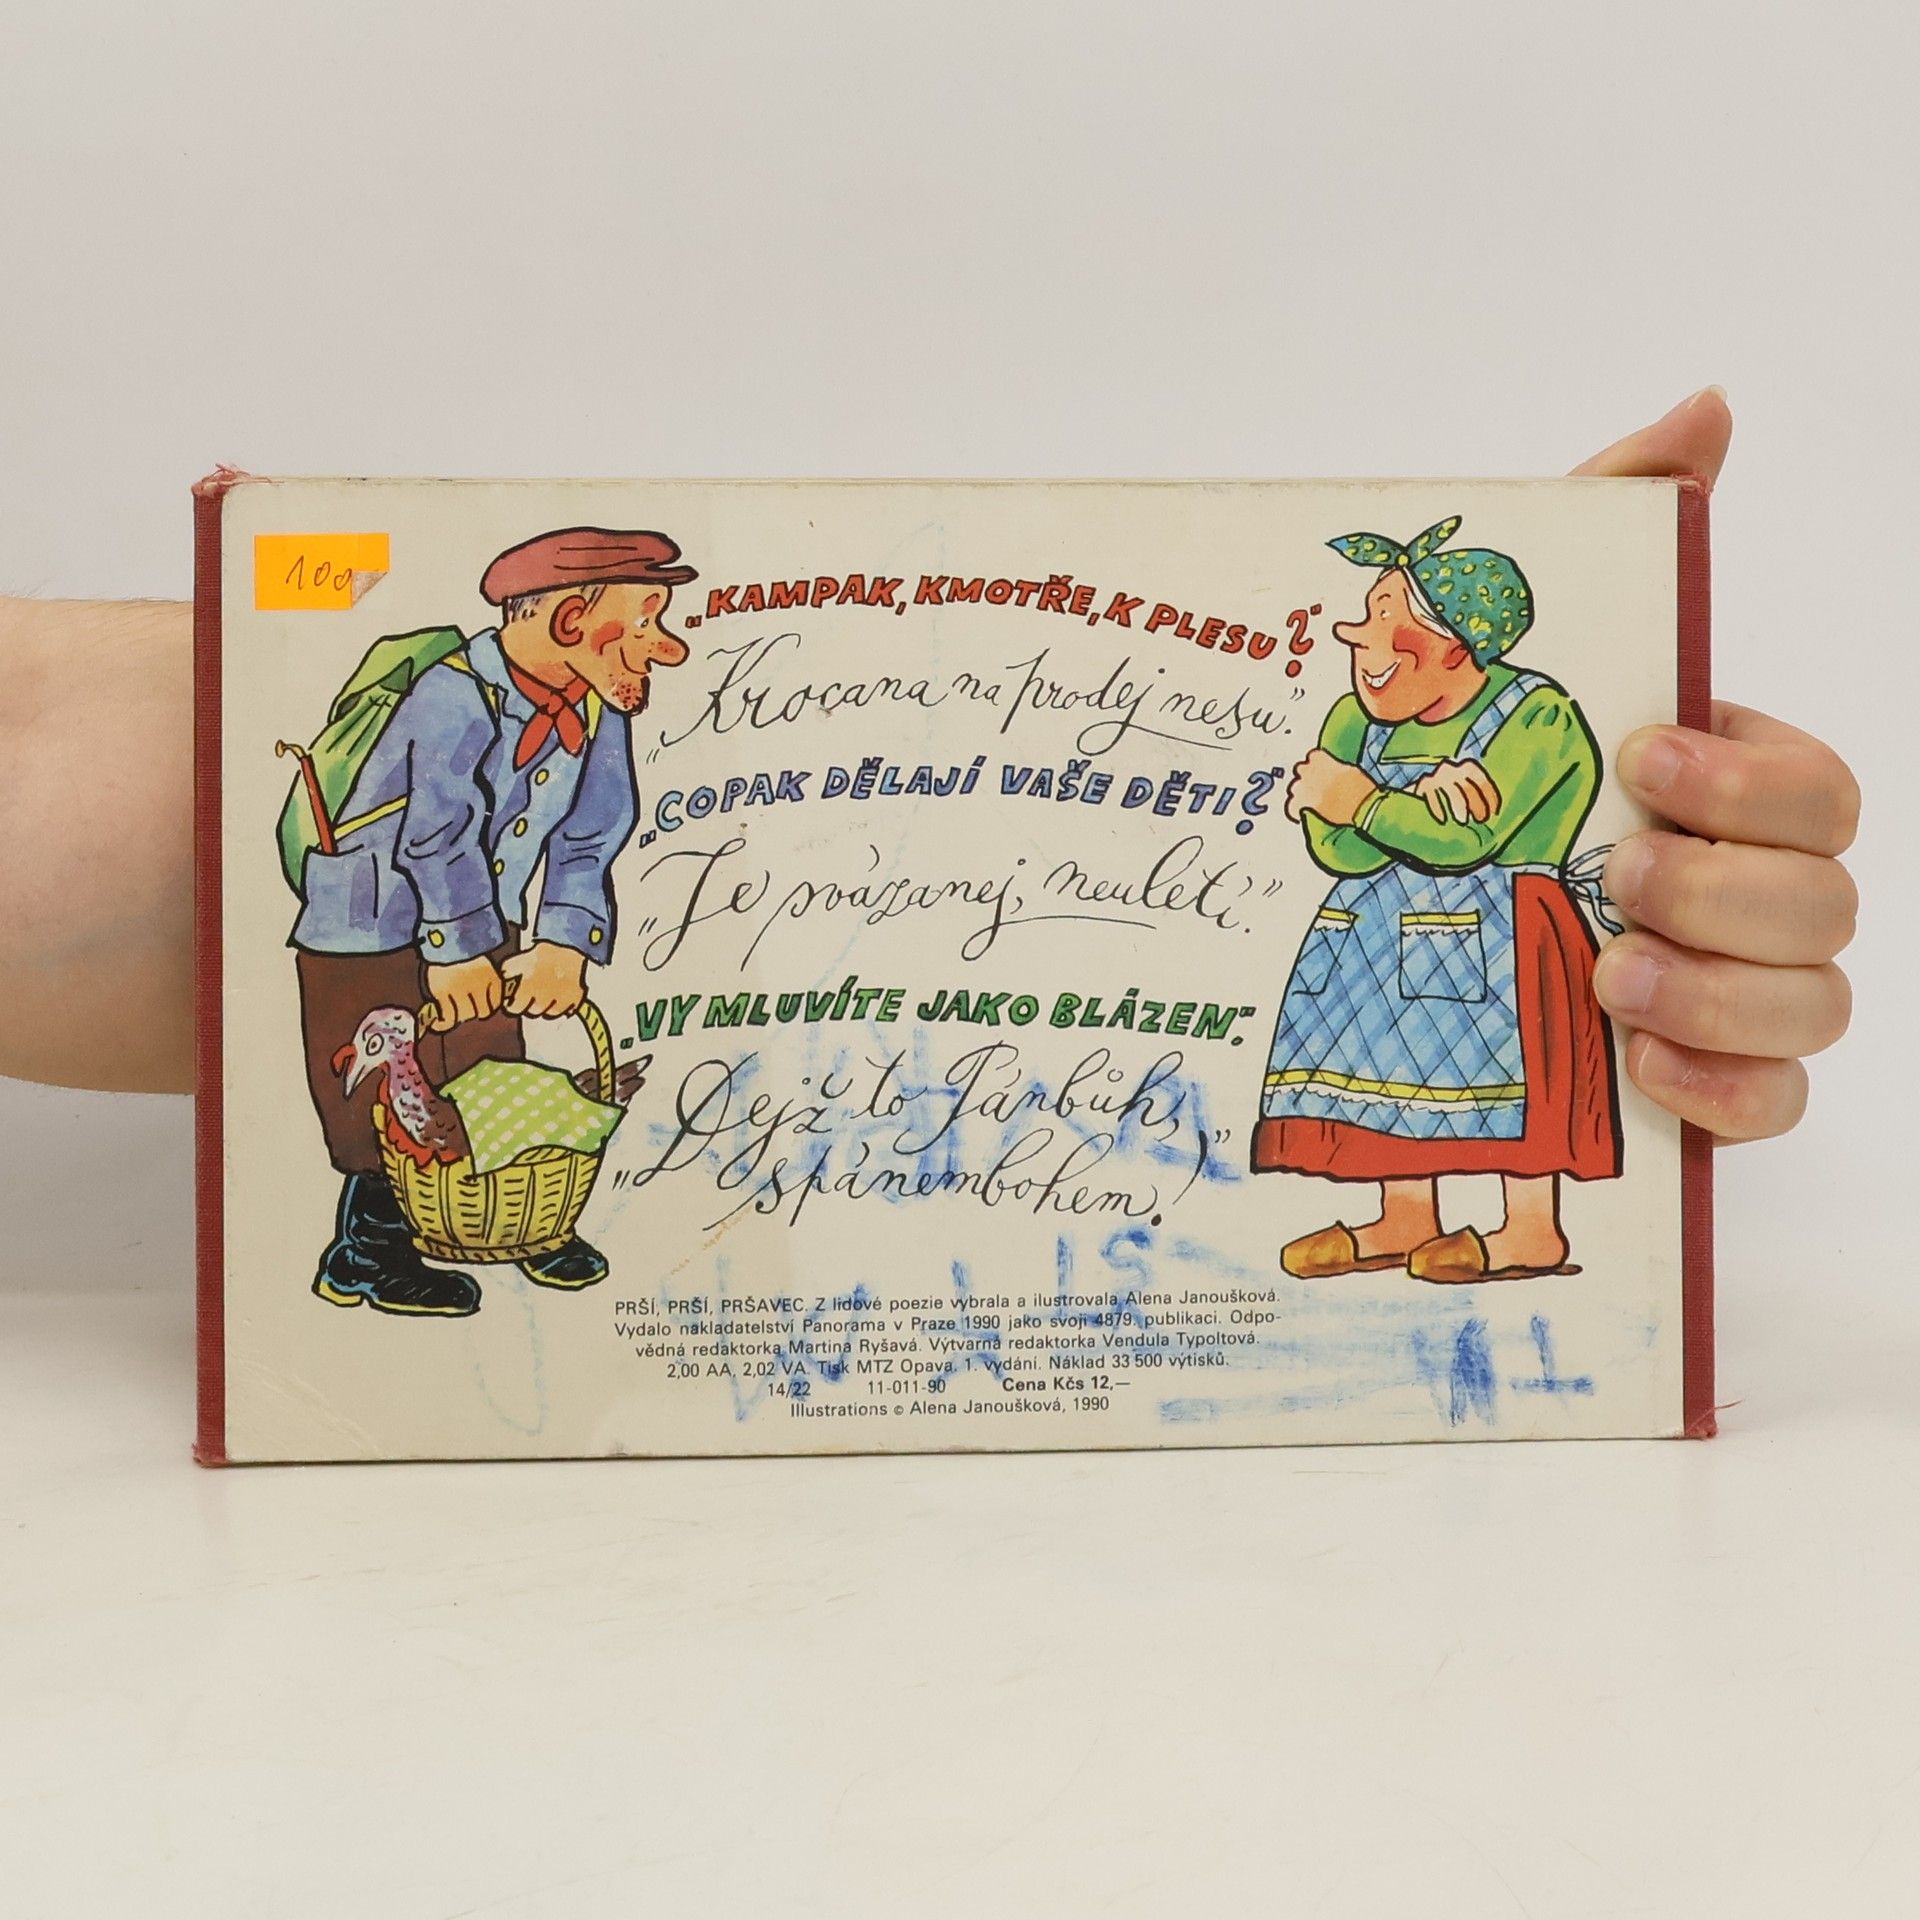 100
„KAMPAK, KMOTŘE, K PLESU?"
„Krocana na prodej nesu."
„COPAK DĚLAJÍ VAŠE DĚTI?"
„Je svázanej, neuletí."
„VY MLUVÍTE JAKO BLÁZEN."
„Dejž to Pánbůh,
spánembohem!"
PRŠÍ, PRŠÍ, PRŠAVEC. Z lidové poezie vybrala a ilustrovala Alena Janoušková.
Vydalo nakladatelství Panorama v Praze 1990 jako svoji 4879. publikaci. Odpo-
vědná redaktorka Martina Ryšavá. Výtvarná redaktorka Vendula Typoltová.
2,00 AA, 2,02 VA. Tisk MTZ Opava. 1. vydání. Náklad 33 500 výtisků.
14/22 11-011-90 Cena Kčs 12,—
Illustrations © Alena Janoušková, 1990